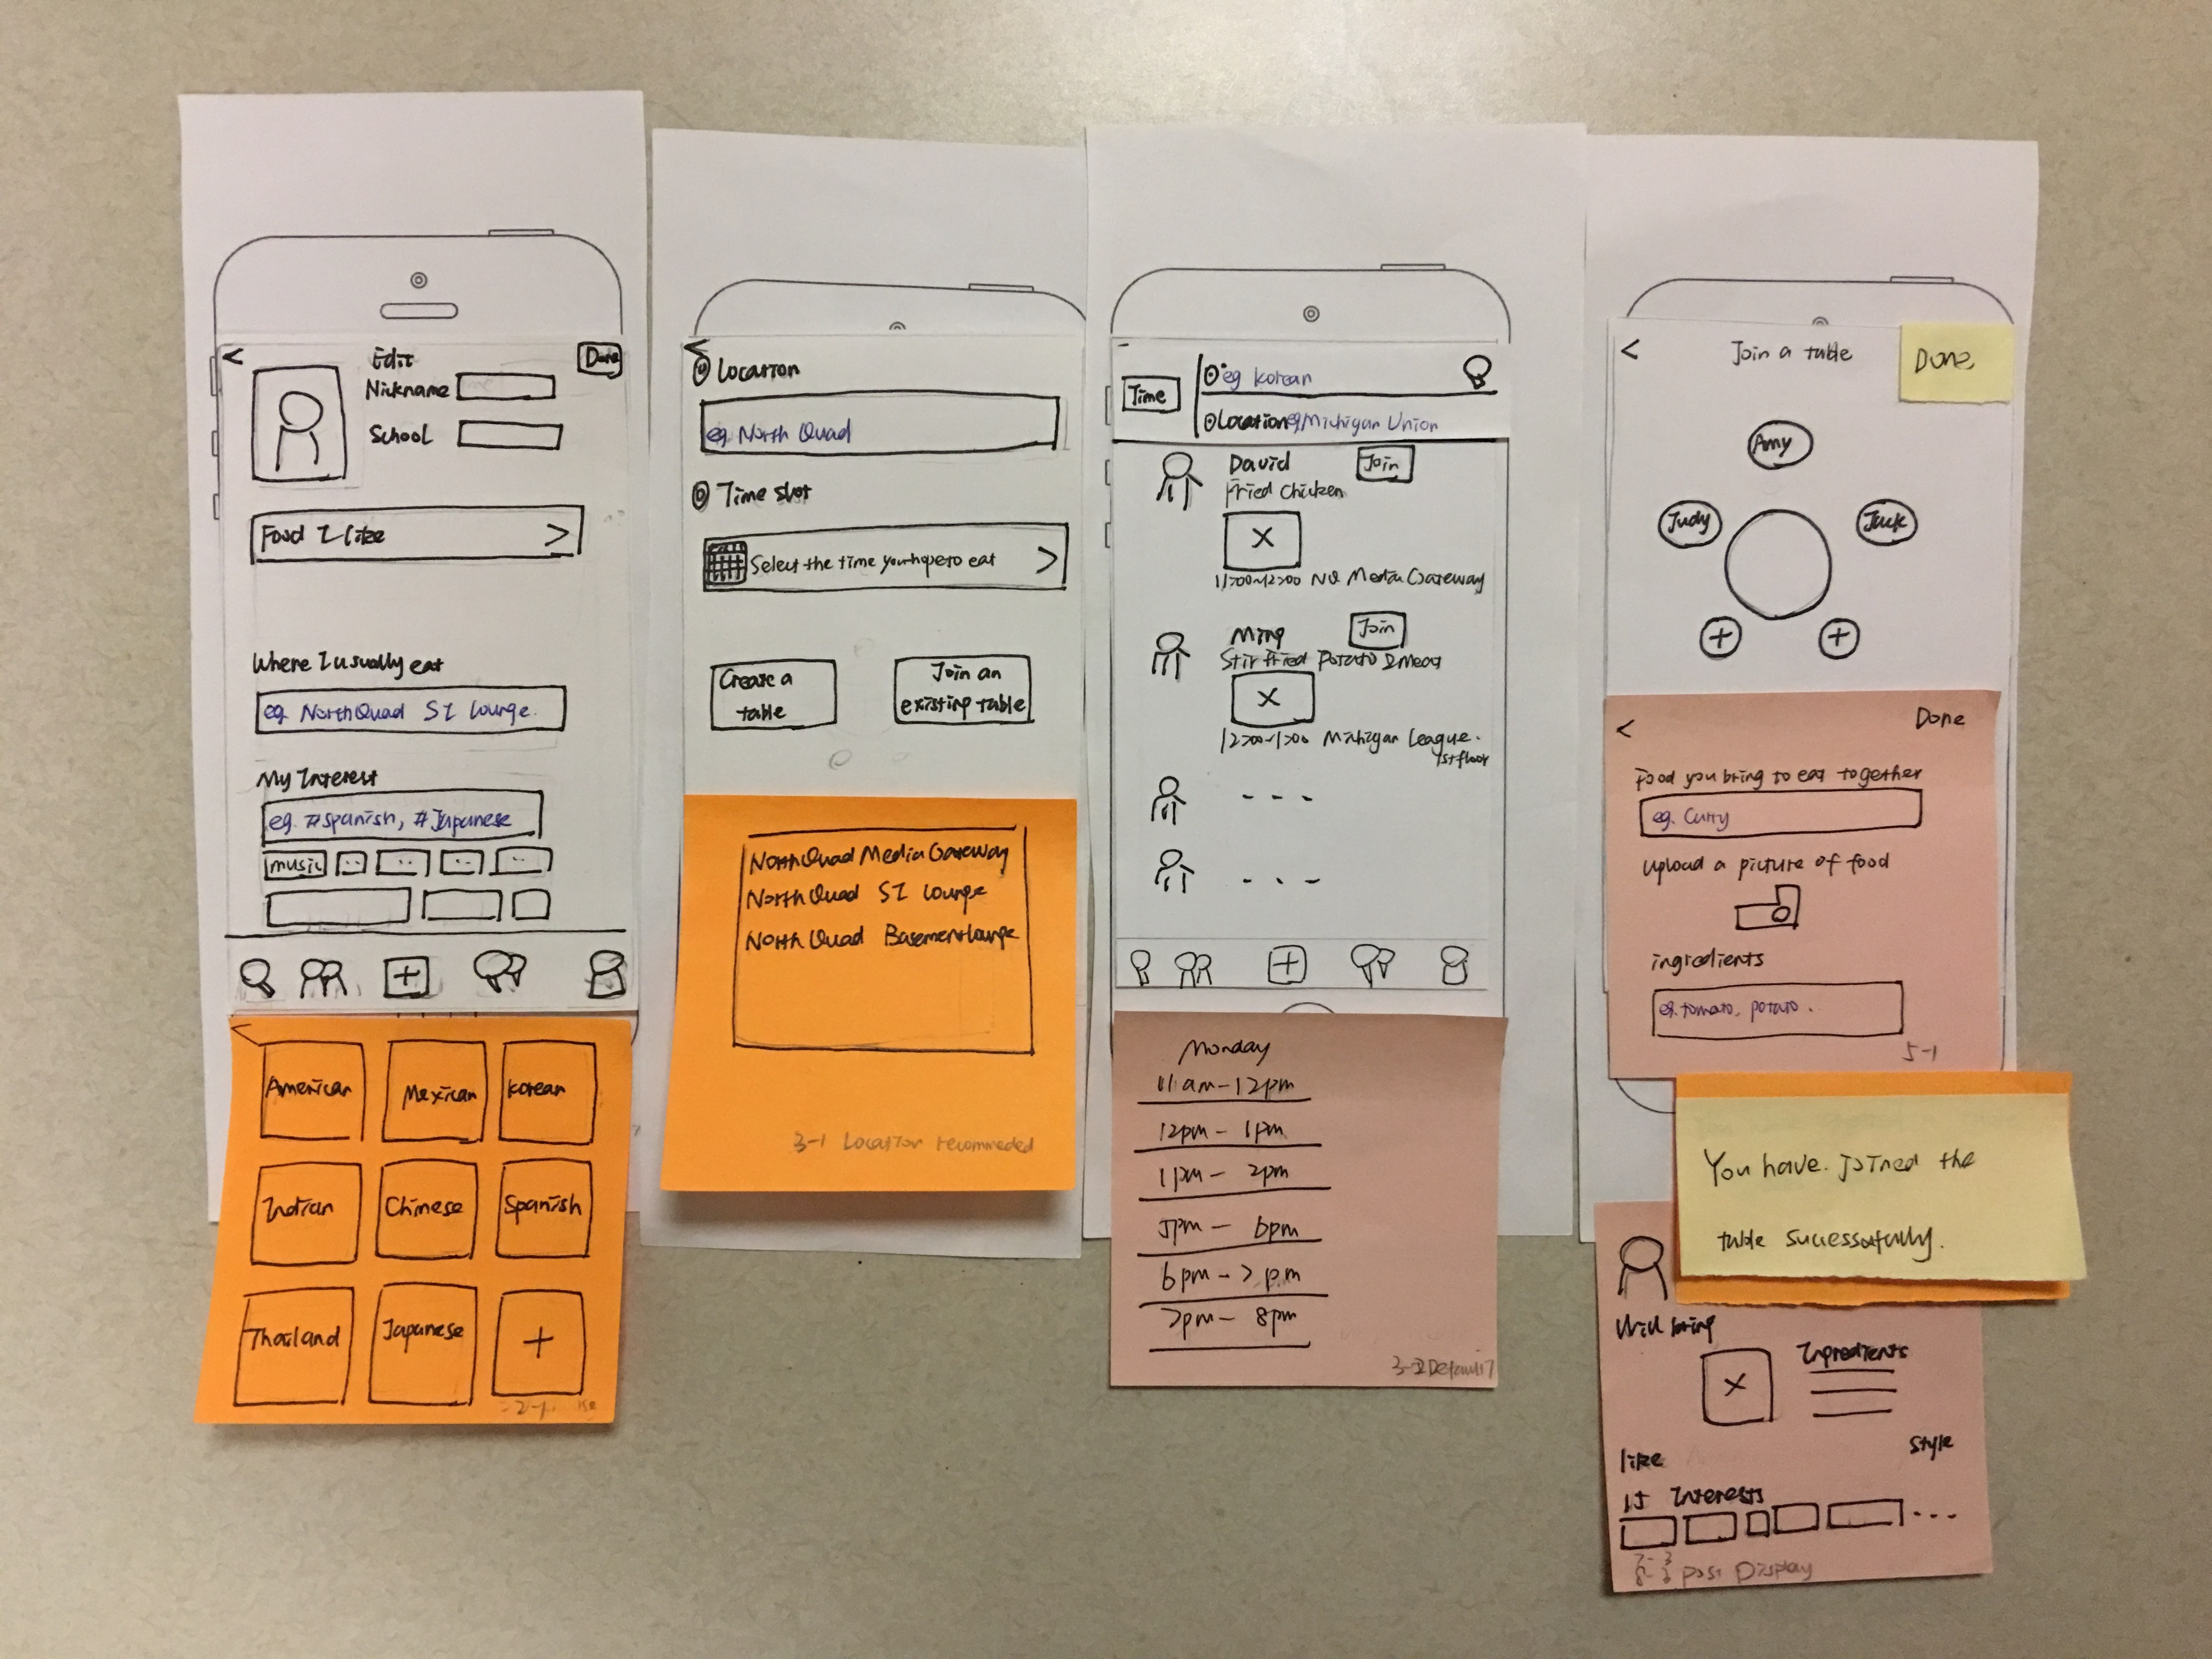 <
Edit
Done
Nickname
School
Food I like >
Where I usually eat
eg. North Quad SI lounge.
My Interest
eg. #spanish, #Japanese
music
+
<
American
Mexican
Korean
Indian
Chinese
Spanish
Thailand
Japanese
+
2-1
<
Location
eg. North Quad
Time slot
Select the time you hope to eat >
Create a
table
Join an
existing table
North Quad Media Gateway
North Quad SI lounge
North Quad Basement lounge
3-1 Location recommeded
Time
eg korean
Location eg Michigan Union
David
Join
Fried Chicken
X
11:00~12:00 NQ Media Gateway
Ming
Join
Stir fried potato & meat
X
12:00~1:00 Michigan League.
1st floor
- - -
- - -
+
Monday
11 am - 12pm
12pm - 1pm
1pm - 2pm
5pm - 6pm
6pm - 7pm
7pm - 8pm
<
Join a table
Done
Amy
Judy
Jack
+
+
<
Done
Food you bring to eat together
eg. Curry
upload a picture of food
ingredients
eg. tomato, potato.
5-1
You have joined the
table successfully.
Will bring
X
Ingredients
like
style
Interests
...
post Display